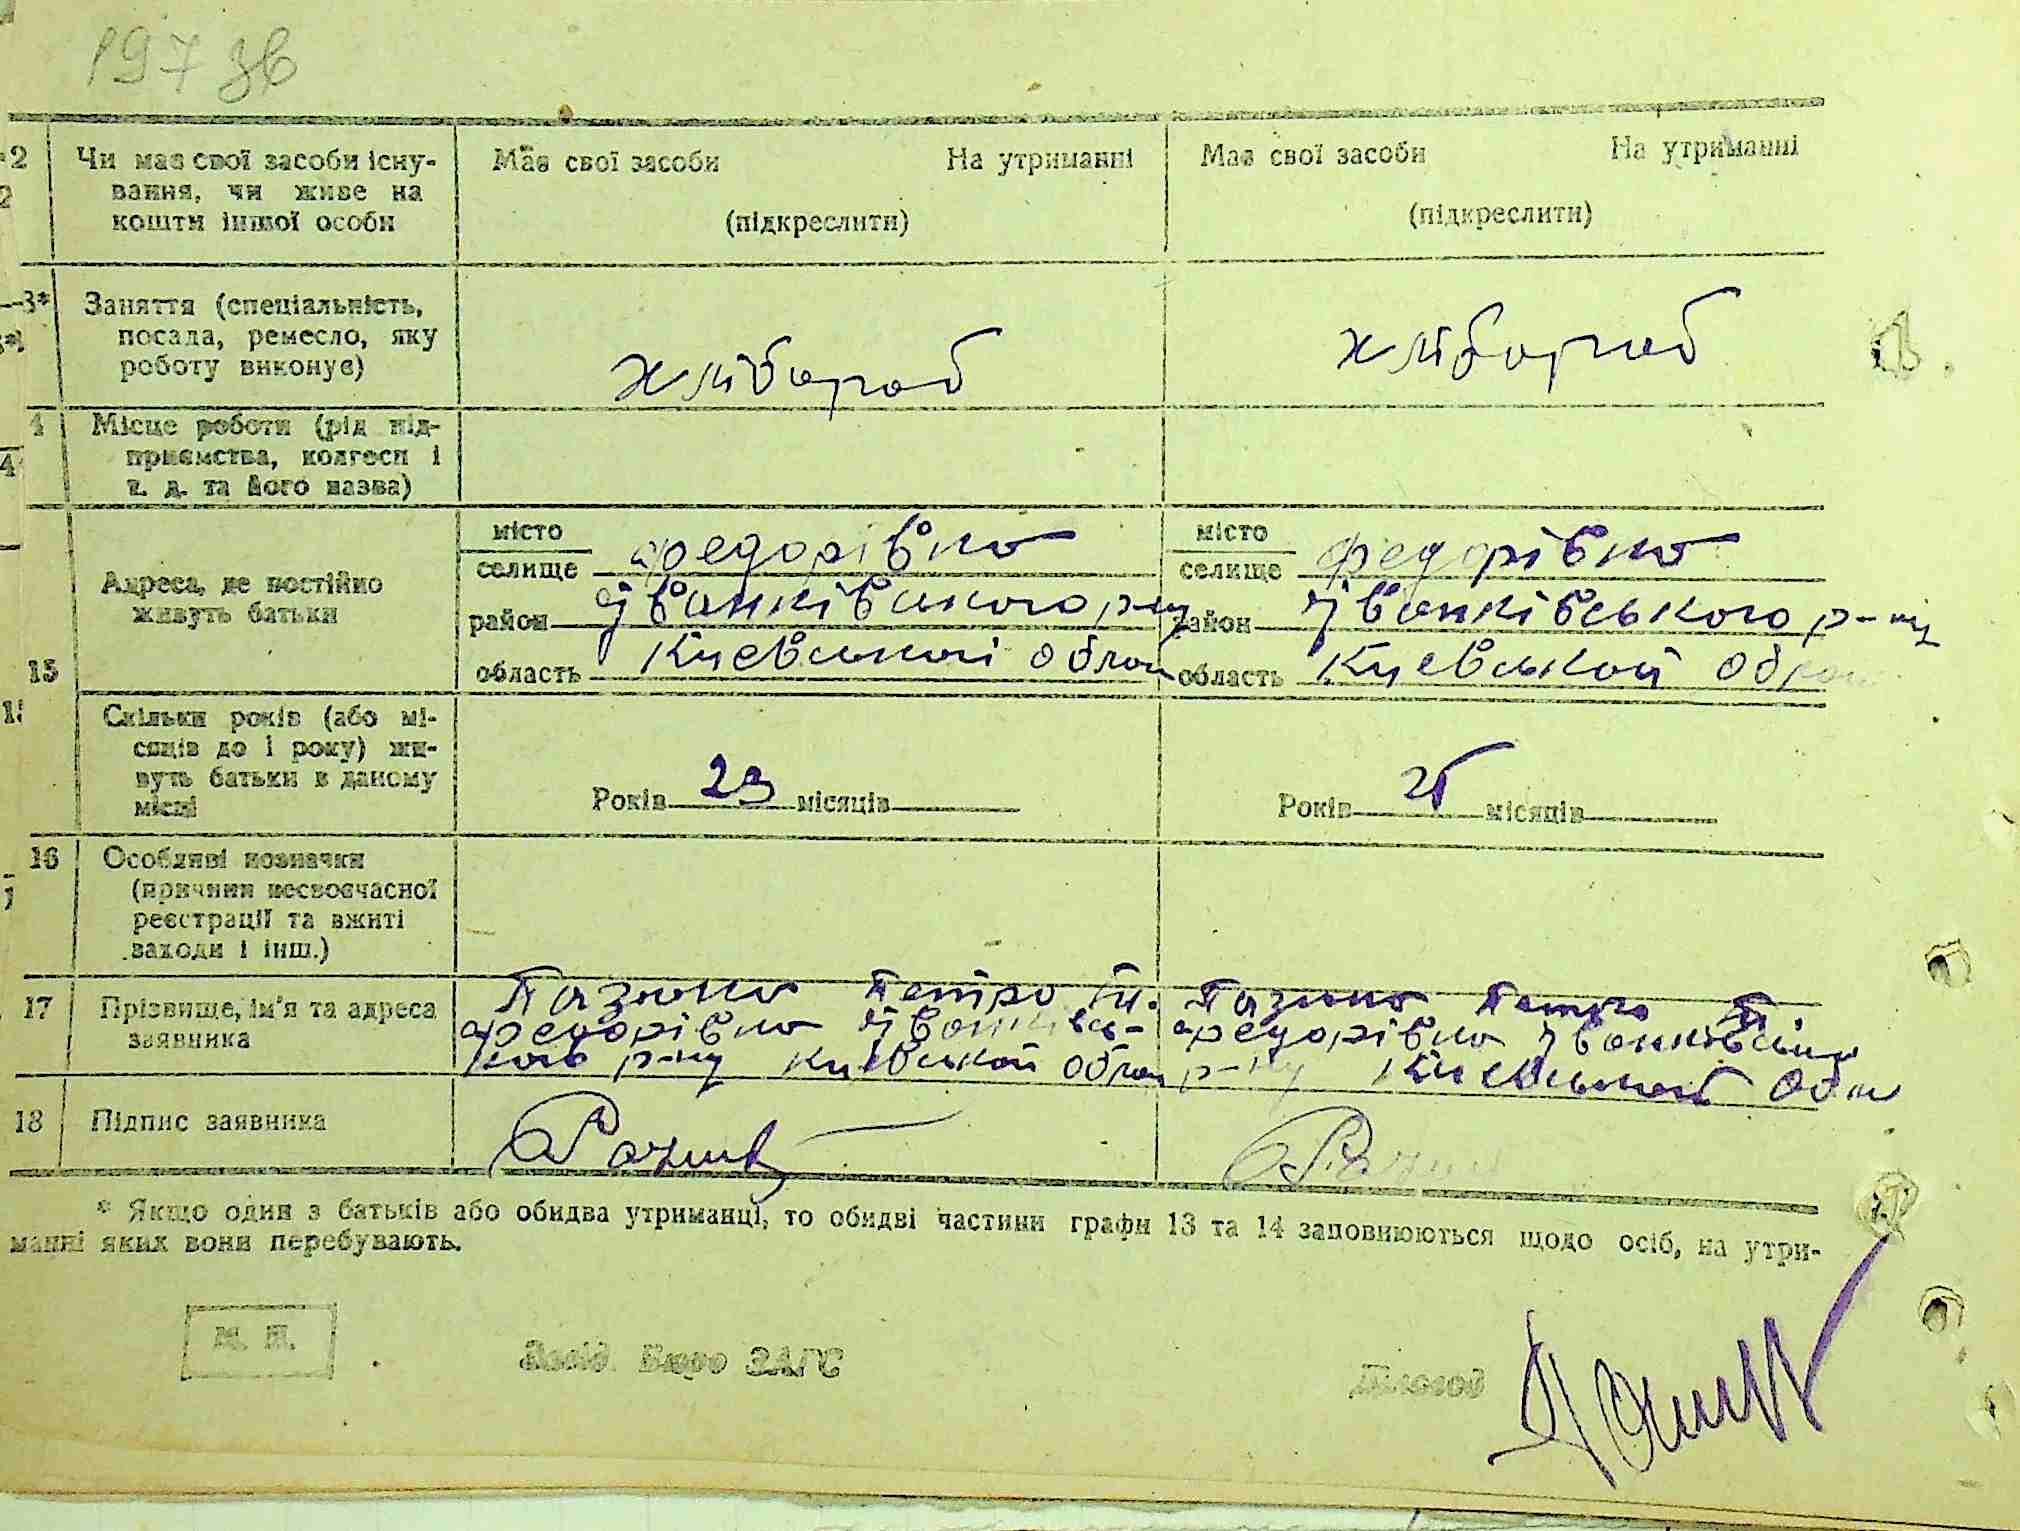 197 зв
12 Чи має свої засоби існу- Має свої засоби На утриманні Має свої засоби На утриманні
вання, чи живе на
кошти іншої особи (підкреслити) (підкреслити)
13* Заняття (спеціальність,
посада, ремесло, яку
роботу виконує) хлібороб хлібороб
14 Місце роботи (рід під-
приємства, колгосп і
т. д. та його назва)
місто місто
селище Федорівка селище Федорівка
Адреса, де постійно
живуть батьки район Іванківського р-ну район Іванківського р-ну
15 область Киевської област область Киевськой
Скільки років (або мі-
сяців до 1 року) жи-
вуть батьки в даному
місці Років 23 місяців Років місяців
16 Особливі позначки
(причини несвоєчасної
реєстрації та вжиті
заходи і інш.)
17 Прізвище, ім'я та адреса Петро Петро
заявника Федорівка Іванківсь- Федорівка
кого р-ну Киевськой р-ну Киевської
18 Підпис заявника
* Якщо один з батьків або обидва утриманці, то обидві частини графи 13 та 14 заповнюються щодо осіб, на утри-
манні яких вони перебувають.
М. П. Завід. Бюро ЗАГС Діловод